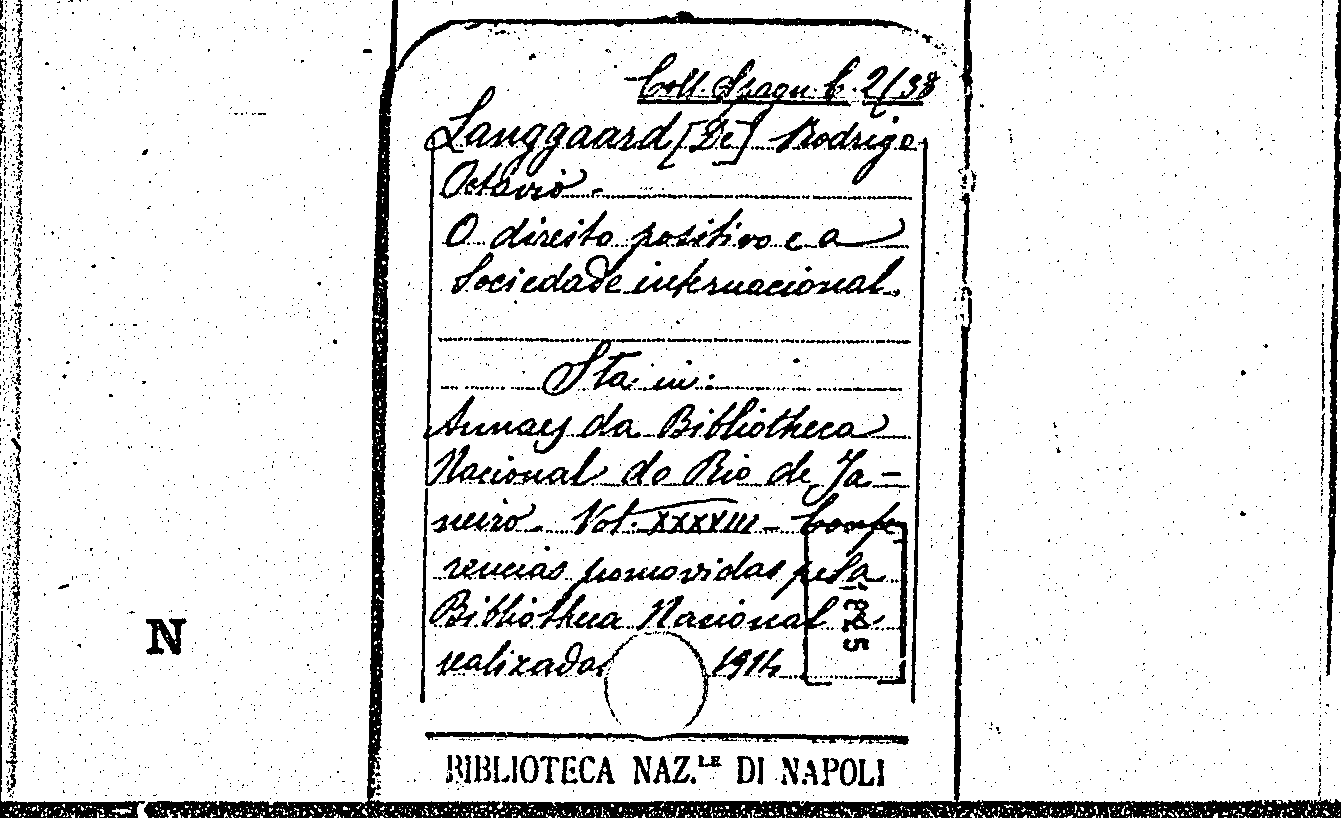 Coll. Spagn. C. 2/38
Langgaard [De] Rodrigo
Octavio.
O direito positivo e a
Sociedade internacional.
Sta in:
Annaes da Bibliotheca
Nacional do Rio de Ja-
neiro. Vol. XXXVIII - Confe
rencias promovidas pela
Bibliotheca Nacional e
realizadas 1914
N
BIBLIOTECA NAZ.LE DI NAPOLI